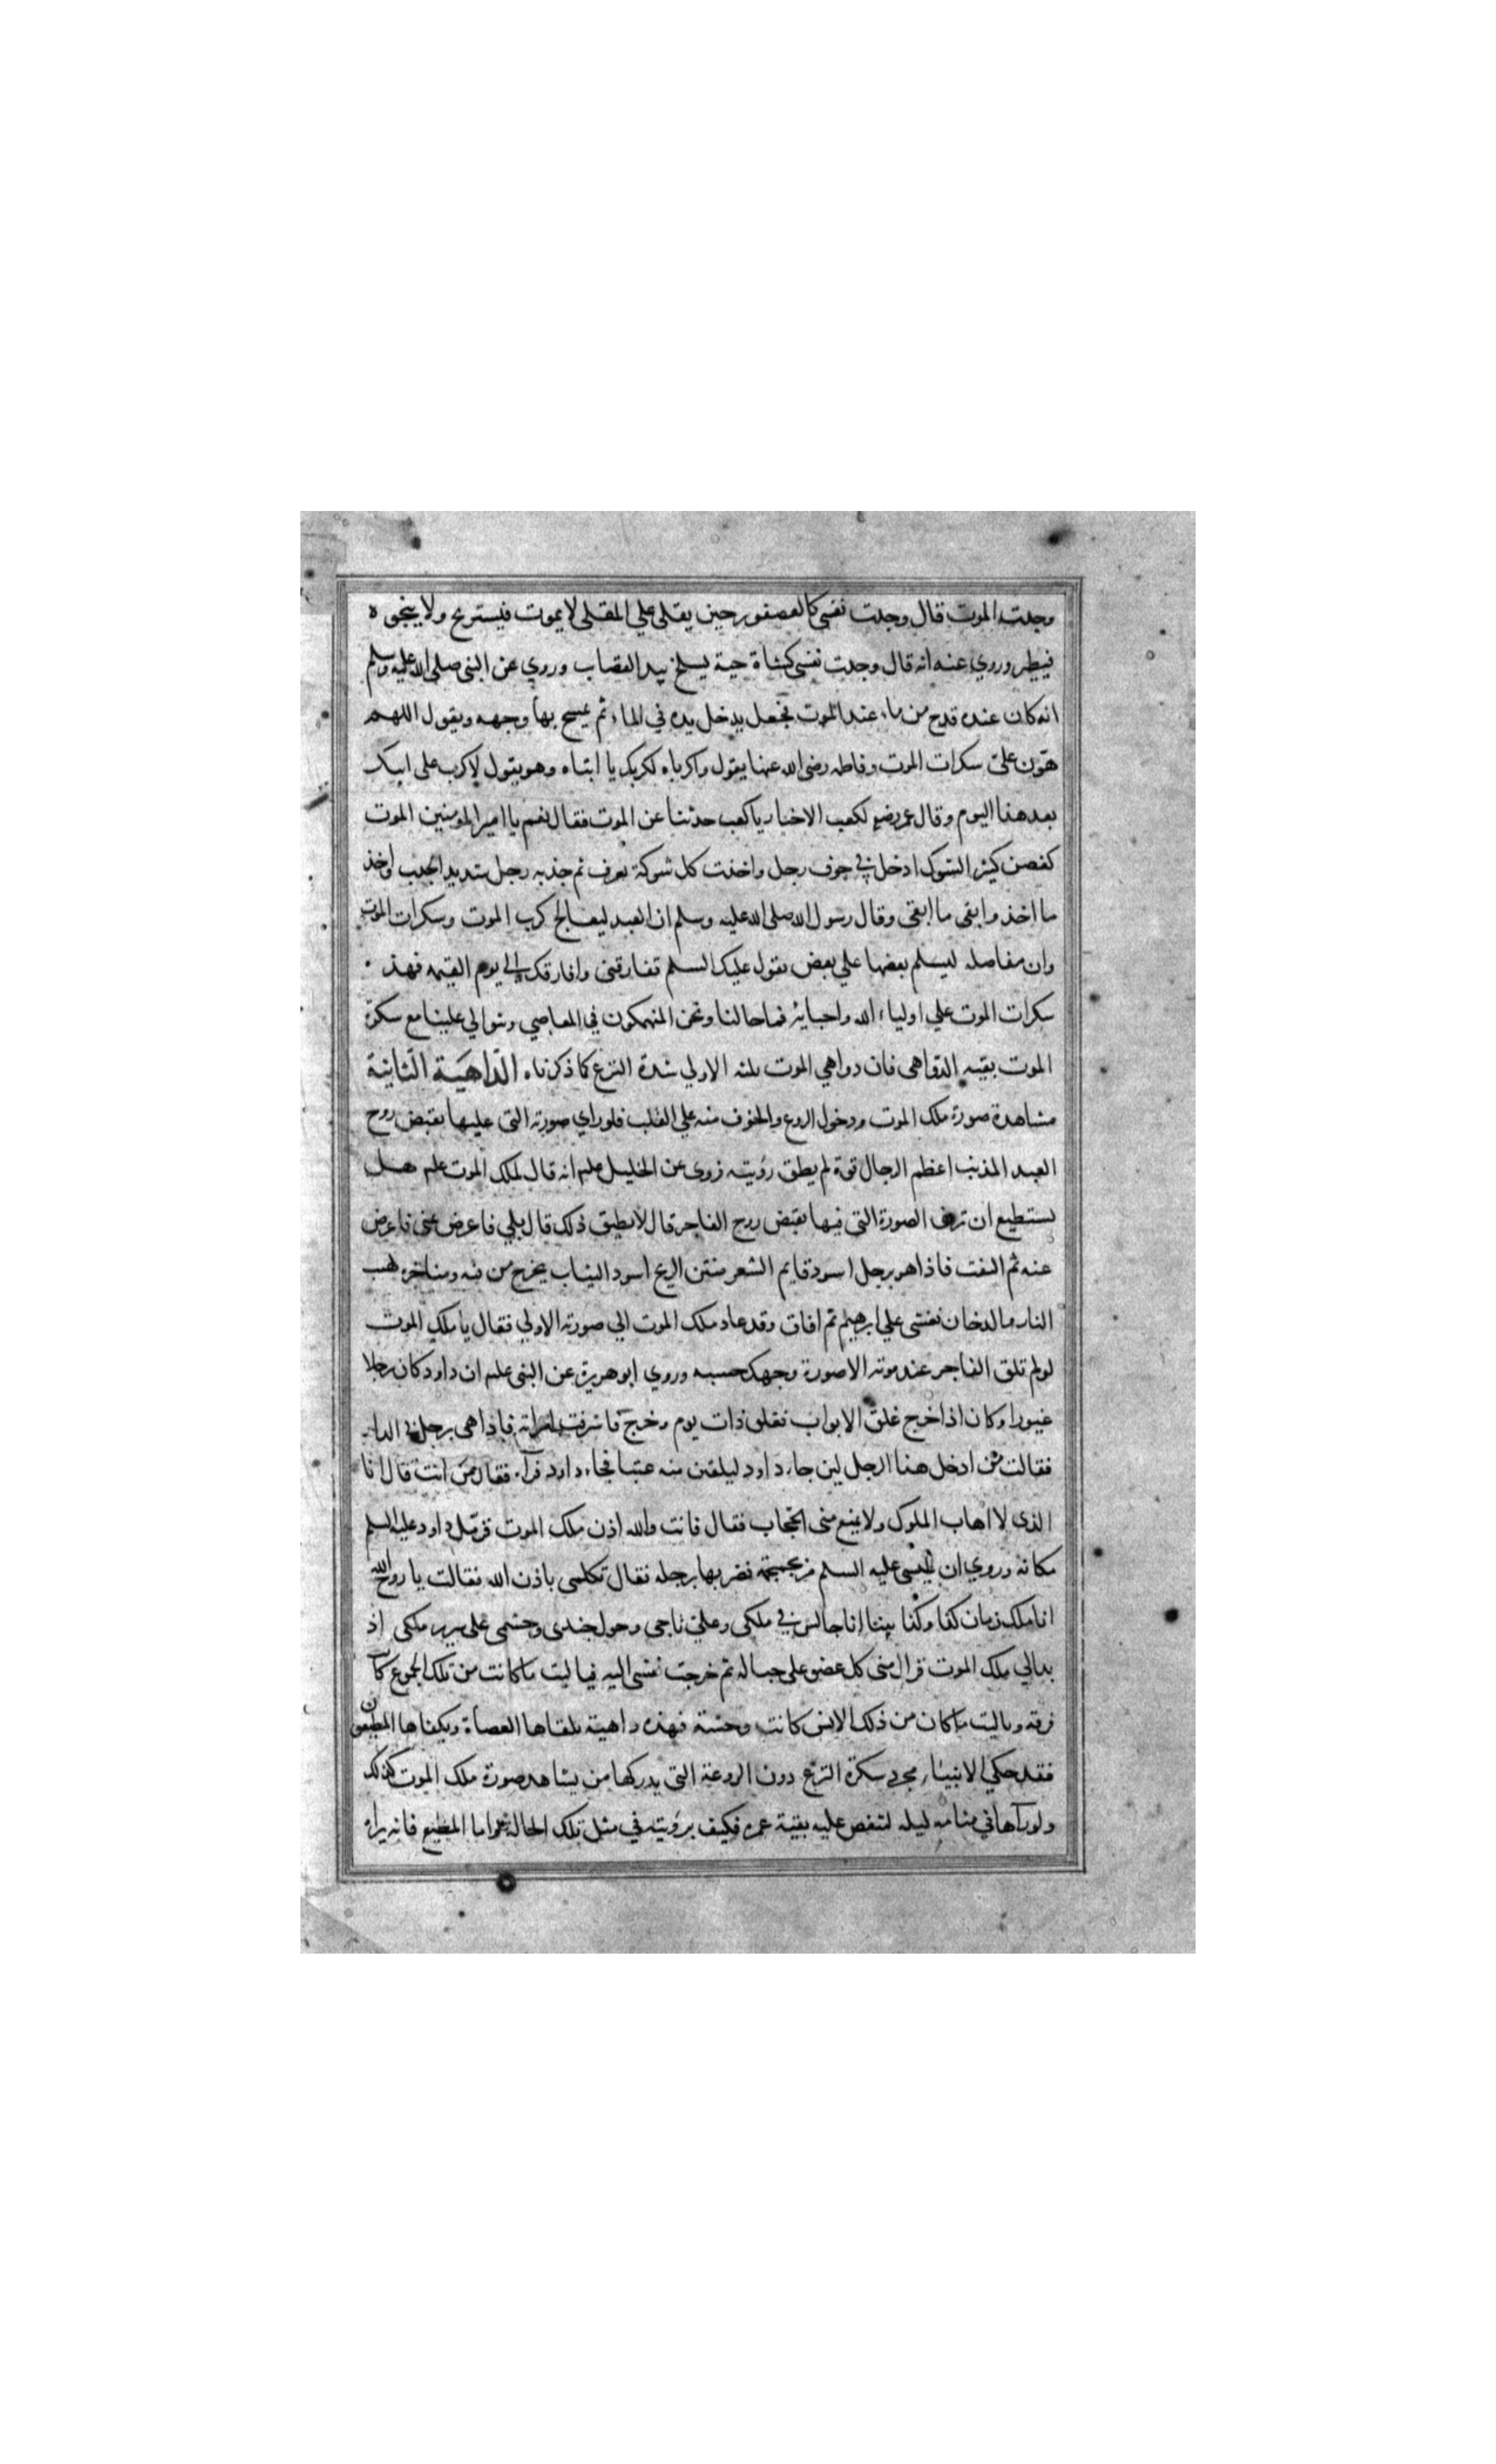 وجدت الموت قال وجدت نفسي كالعصفور حين يقلى علي المقلى لا يموت فيستريح ولا ينجو ه
فيطير وروي عنه انه قال وجدت نفسي كشاة حية يسلخ بيد القصاب وروي عن النبي صلى الله عليه وسلم
انه كان عنده قدح من ماء عند الموت فجعل يدخل يده في الماء ثم يمسح بها وجهه ويقول اللهم
هوّن عليّ سكرات الموت وفاطمه رضى الله عنها يقول واكرباه لكربك يا ابتاه وهو يقول لا كرب على ابيك
بعد هذا اليوم وقال عمر رضي لكعب الاخبار يا كعب حدثنا عن الموت فقال نعم يا امير المؤمنين الموت
كغصن كثير الشوك ادخل في جوف رجل واخذت كل شوكة بعرف ثم جذبه رجل شديد الجذب واخذ
ما اخذ وابقى ما ابقى وقال رسول الله صلى الله عليه وسلم ان العبد ليعالج كرب الموت وسكرات الموت
وان مفاصله ليسلم بعضها علي بعض يقول عليك السلم تفارقني وافارقك الي يوم القيمه فهذ
سكرات الموت علي اولياء الله واحبايه فما حالنا ونحن المنهمكون في المعاصي وتتوالي علينا مع سكرة
الموت بقيه الدواهى فان دواهي الموت ثلثه الاولي شدة النزع كما ذكرناه الدّاهيَة الثانية
مشاهدة صورة ملك الموت ودخول الروع والخوف منه علي القلب فلو راي صورته التى عليها يقبض روح
العبد المذنب اعظم الرجال قوة لم يطق رؤيته فروى عن الخليل علم انه قال لملك الموت علم هل
يستطيع ان ترى الصورة التى فيها يقبض روح الفاجر قال لا يطيق ذلك قال بلي فاعرض عني فاعرض
عنه ثم التفت فاذا هو برجل اسود قايم الشعر منتن الريح اسود الثياب يخرج من فيه ومناخره لهب
النار والدخان فغشى علي ابرهيم ثم افاق وقد عاد ملك الموت الي صورته الاولي فقال يا ملك الموت
لو لم تلق الفاجر عند موته الا صورة وجهك حسبه وروي ابو هريرة عن النبى علم ان داود كان رجلا
غيورا وكان اذا خرج غلق الابواب فغلق ذات يوم وخرج فاشرفت امراته فاذا هى برجل في الدار
فقالت من ادخل هذا الرجل لين جاء داود ليلقين منه عتبا فجاء داود فرآه فقال من انت قال انا
الذى لا اهاب الملوك ولا يمنع منى الحجاب فقال فانت والله اذن ملك الموت فزمّل داود عليه السلم
مكانه وروي ان عيسى عليه السلم مر بجمجمة فضربها برجله فقال تكلمى باذن الله فقالت يا روح الله
انا ملك زمان كذا وكذا بينا انا جالس في ملكى وعليّ تاجى وحول جندى وحشمى على سرير ملكى اذ
بدا لي ملك الموت فزال منى كل عضو على حياله ثم خرجت نفسى اليه فيا ليت ما كانت من تلك الجموع كان
فرقه ويا ليت ما كان من ذلك الانس كانت وحشة فهذه داهية يلقاها العصاة ويكفاها المطيعون
فقد حكي الانبياء مجرد سكرة النزع دون الروعة التى يدركها من يشاهد صورة ملك الموت كذلك
ولو رآها في منامه ليله لتنغص عليه بقية عمره فكيف برؤيته في مثل تلك الحالة واما المطيع فانه يراه